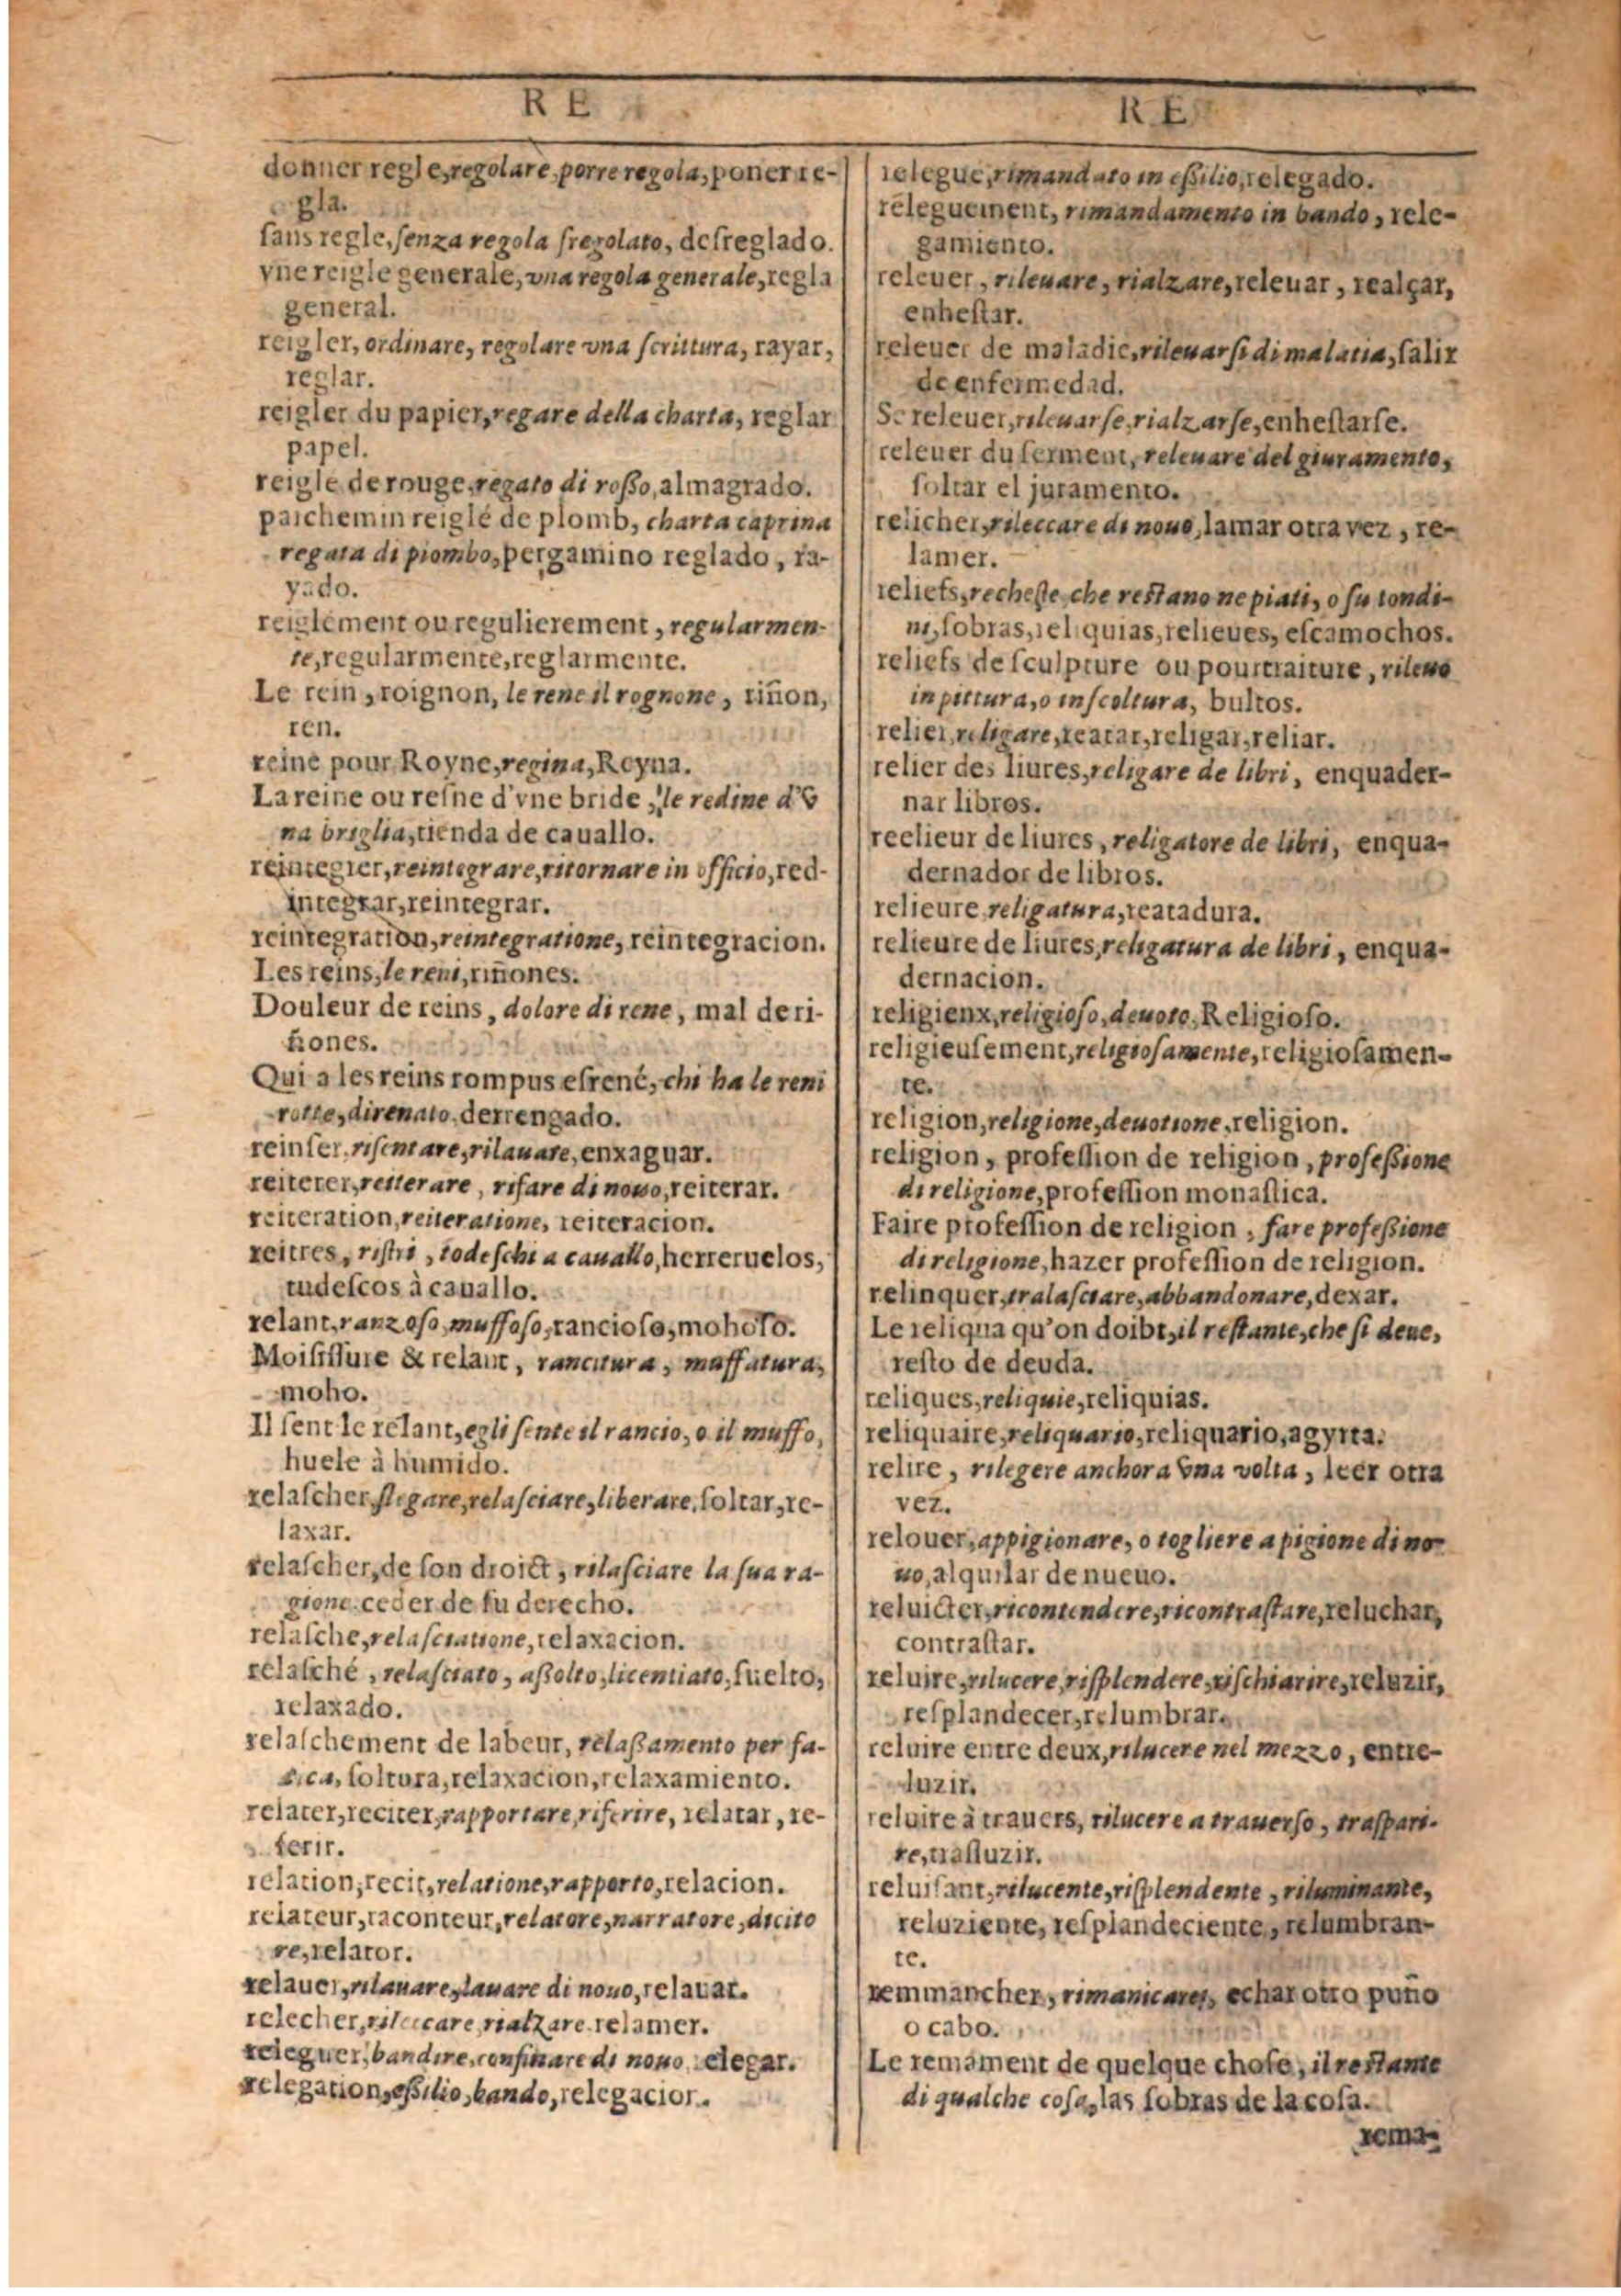 RE
donner regle, regolare, porre regola, poner re-
gla.
sans regle, senza regola sregolato, desreglado.
vne reigle generale, vna regola generale, regla
general.
reigler, ordinare, regolare vna scrittura, rayar,
reglar.
reigler du papier, regare della charta, reglar
papel.
reigle de rouge, regato di roßo, almagrado.
parchemin reiglé de plomb, charta caprina
regata di piombo, pergamino reglado, ra-
yado.
reiglément ou regulierement, regularmen-
te, regularmente, reglarmente.
Le rein, roignon, le rene il rognone, riñon,
ren.
reine pour Royne, regina, Reyna.
La reine ou resne d'vne bride, le redine d'v
na briglia, rienda de cauallo.
reintegrer, reintegrare, ritornare in officio, red-
integrar, reintegrar.
reintegration, reintegratione, reintegracion.
Les reins, le reni, riñones.
Douleur de reins, dolore di rene, mal de ri-
ñones.
Qui a les reins rompus esrené, chi ha le reni
rotte, direnato, derrengado.
reinser, risentare, rilauare, enxaguar.
reiterer, reiterare, rifare di nouo, reiterar.
reiteration, reiteratione, reiteracion.
reitres, ristri, todeschi a cauallo, herreruelos,
tudescos à cauallo.
relant, ranzoso, muffoso, rancioso, mohoso.
Moisissure & relant, rancitura, muffatura,
moho.
Il sent le relant, egli sente il rancio, o il muffo,
huele à humido.
relascher, slegare, relasciare, liberare, soltar, re-
laxar.
relascher, de son droict, rilasciare la sua ra-
gione. ceder de su derecho.
relasche, relasciatione, relaxacion.
relasché, relasciato, aßolto, licentiato, suelto,
relaxado.
relaschement de labeur, relaßamento per fa-
tica, soltura, relaxacion, relaxamiento.
relater, reciter, rapportare, riferire, relatar, re-
ferir.
relation, recit, relatione, rapporto, relacion.
relateur, raconteur, relatore, narratore, dicito
re, relator.
relauer, rilauare, lauare di nouo, relauar.
relecher, rileccare, rialzare. relamer.
releguer, bandire, confinare di nouo, elegar.
relegation, eßilio, bando, relegacion.
RE
relegue, rimandato in eßilio, relegado.
releguement, rimandamento in bando, rele-
gamiento.
releuer, rileuare, rialzare, releuar, realçar,
enhestar.
releuer de maladie, rileuarsi di malatia, salir
de enfermedad.
Se releuer, rileuarse, rialzarse, enhestarse.
releuer du serment, releuare del giuramento,
soltar el juramento.
relicher, rileccare di nouo, lamar otra vez, re-
lamer.
reliefs, recheste, che restano ne piati, o su tondi-
ni, sobras, reliquias, relieues, escamochos.
reliefs de sculpture ou pourtraiture, rileuo
in pittura, o in scoltura, bultos.
relier, religare, reatar, religar, reliar.
relier des liures, religare de libri, enquader-
nar libros.
reelieur de liures, religatore de libri, enqua-
dernador de libros.
relieure, religatura, reatadura.
relieure de liures, religatura de libri, enqua-
dernacion.
religienx, religioso, deuoto, Religioso.
religieusement, religiosamente, religiosamen-
te.
religion, religione, deuotione, religion.
religion, profession de religion, profeßione
di religione, profession monastica.
Faire profession de religion, fare profeßione
di religione, hazer profession de religion.
relinquer, tralasciare, abbandonare, dexar.
Le reliqua qu'on doibt, il restante, che si deue,
resto de deuda.
reliques, reliquie, reliquias.
reliquaire, reliquario, reliquario, agyrta.
relire, rilegere anchora vna volta, leer otra
vez.
relouer, appigionare, o togliere a pigione di no-
uo, alquilar de nueuo.
reluicter, ricontendere, ricontrastare, reluchar,
contrastar.
reluire, rilucere, risplendere, rischiarire, reluzir,
resplandecer, relumbrar.
reluire entre deux, rilucere nel mezzo, entre-
luzir.
reluire à trauers, rilucere a trauerso, traspari-
re, trasluzir.
reluisant, rilucente, risplendente, riluminante,
reluziente, resplandeciente, relumbran-
te.
remmancher, rimanicare, echar otro puño
o cabo.
Le remament de quelque chose, il restante
di qualche cosa, las sobras de la cosa.
rema-